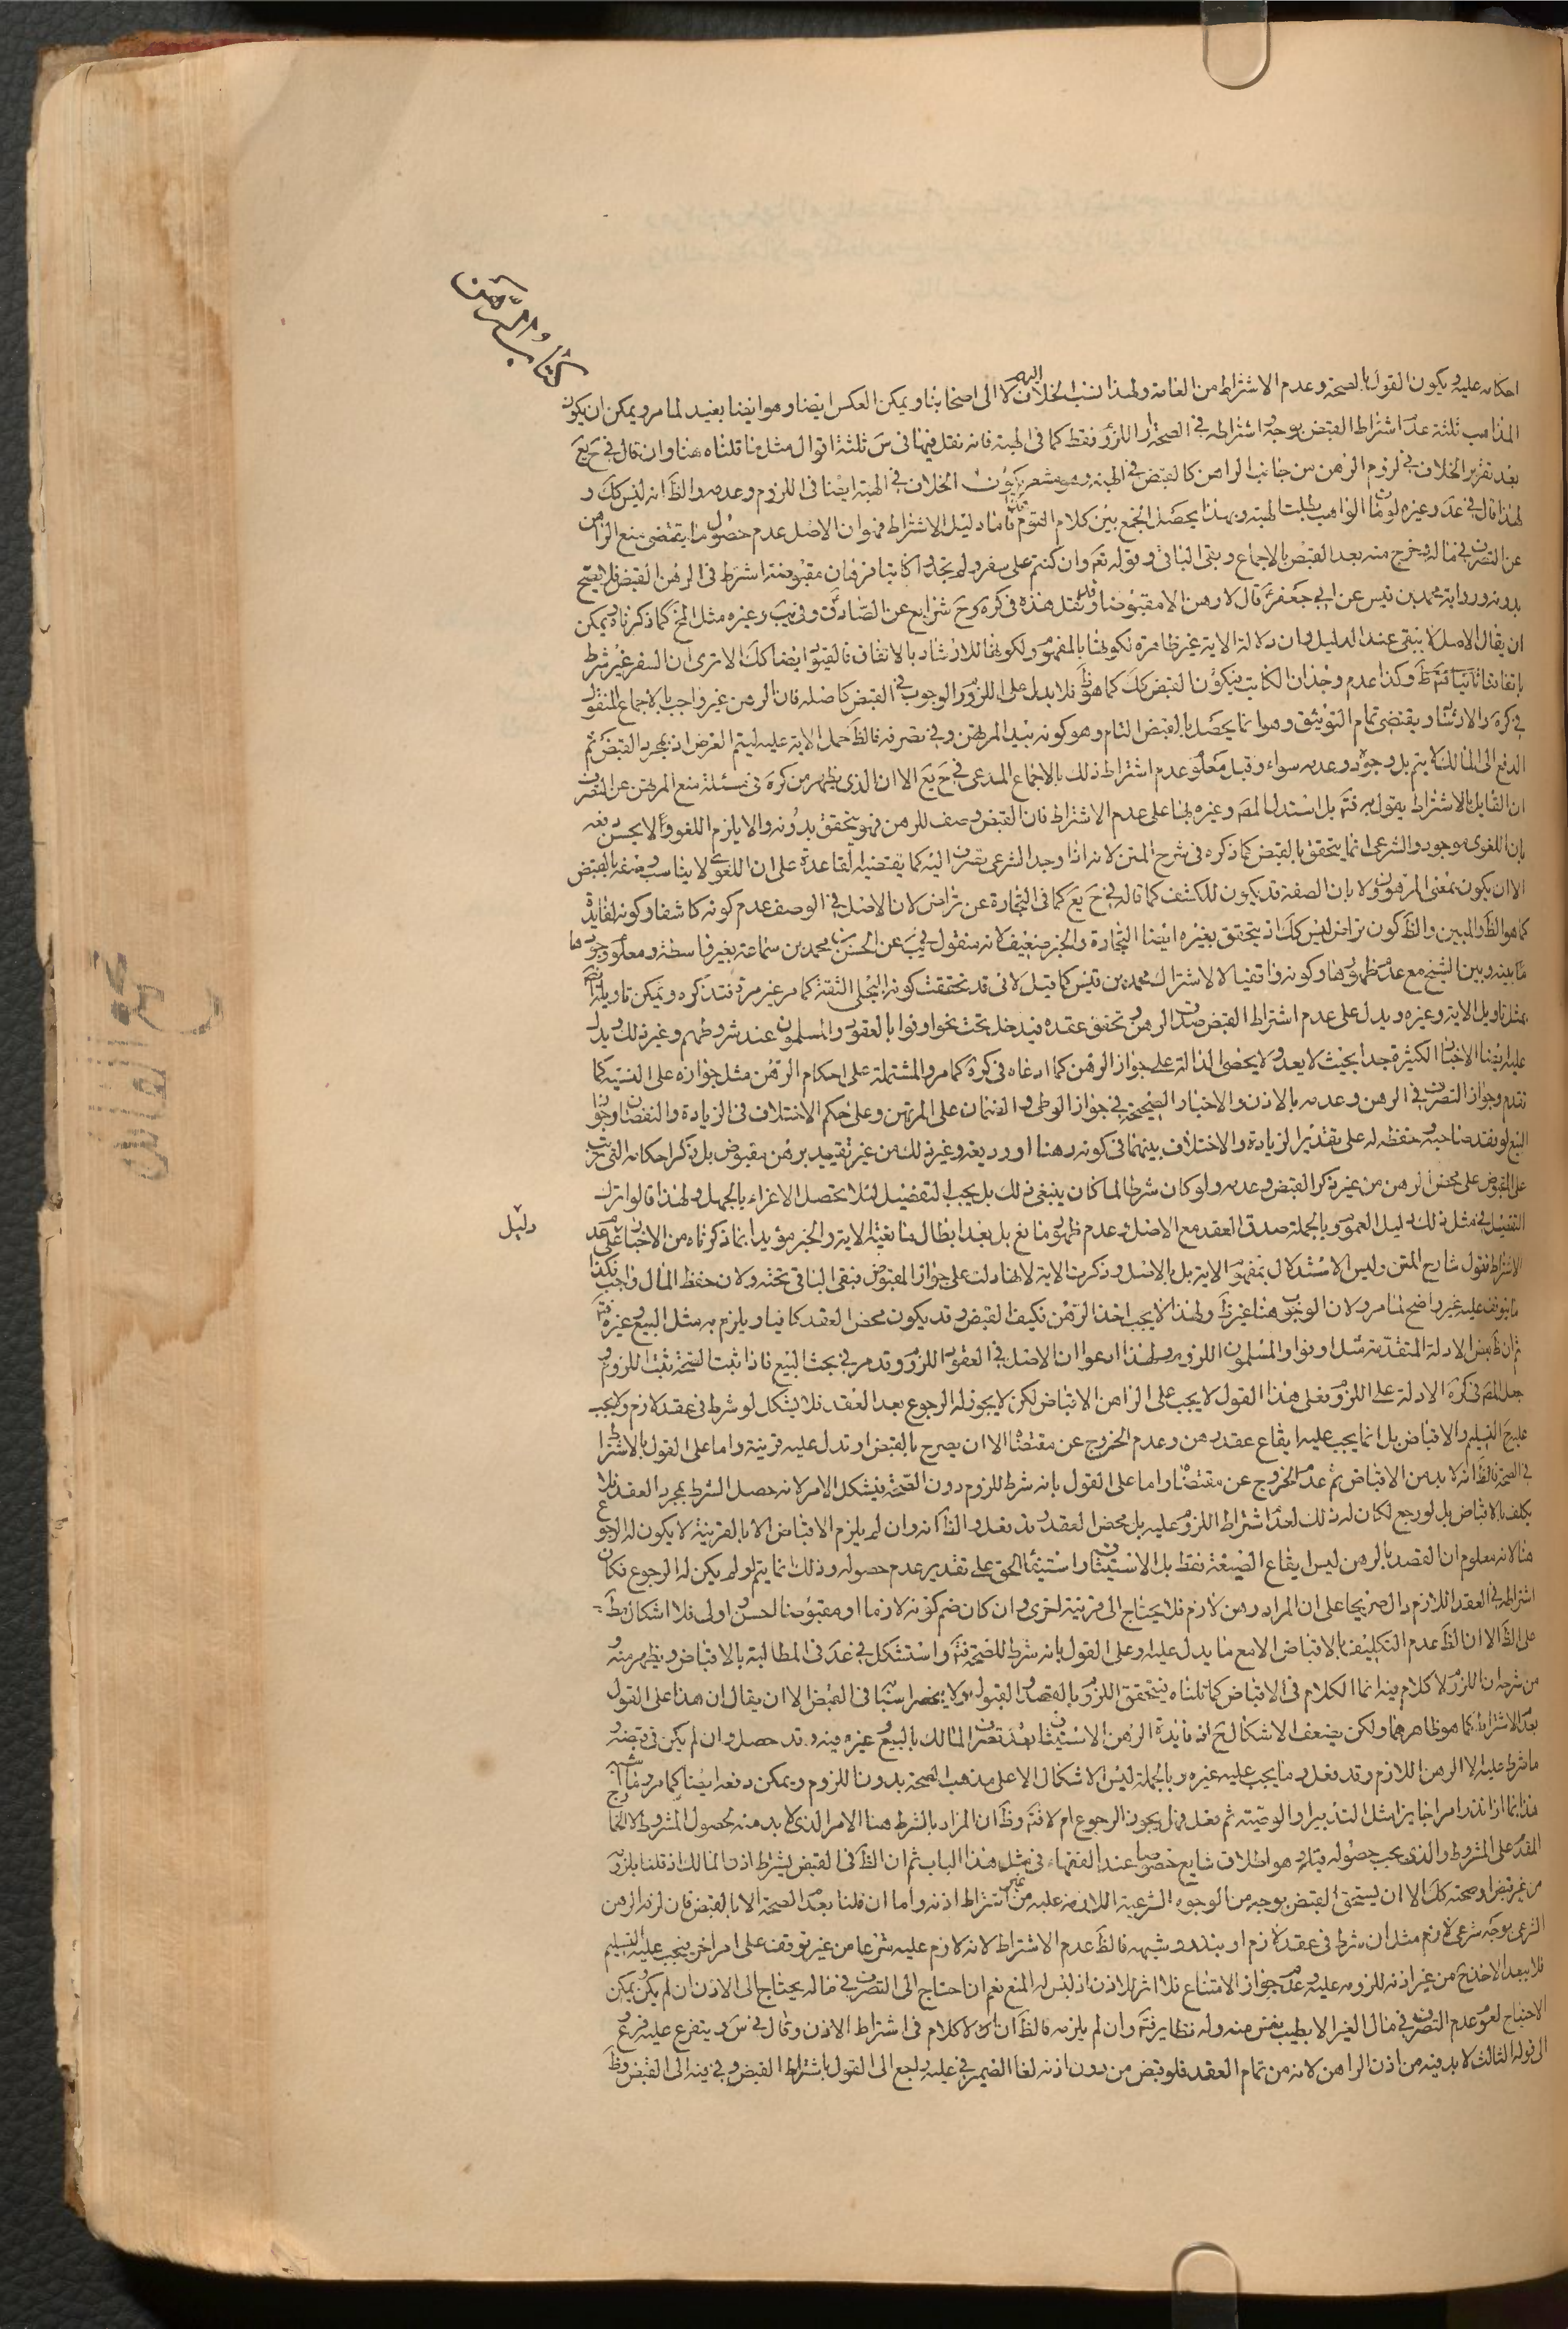 كتاب الرهن
احكامه عليه ويكون القول بالصحة وعدم الاشتراط من العامة ولهذا نسب الخلاف اليهم لا الى اصحابنا ويمكن العكس ايضا وهو ايضا بعيد لما مر ويمكن ان يكون
المذاهب ثلثة عدم اشتراط القبض بوجه واشتراطه في الصحة او اللزوم فقط كما في الهبة فانه نقل فيها في س ثلثة اقوال مثل ما قلناه هنا وان قال في ح يع
بعد تقرير الخلاف في لزوم الرهن من جانب الراهن كالقبض في الهبة وهو مشعر بكون الخلاف في الهبة ايضا في اللزوم وعدمه والظ انه ليس كك و
لهذا قال في عد وغيره لو مات الواهب بطلت الهبة وبهذا يحصل الجمع بين كلام القوم فاما دليل الاشتراط فهو ان الاصل عدم حصول ما يقتضى منع الراهن
عن التصرف في ماله وخرج منه بعد القبض بالاجماع وبقى الباقى وقوله تعم وان كنتم على سفر ولم تجدوا كاتبا فرهان مقبوضة اشترط في الرهن القبض فلا يصح
بدونه ورواية محمد بن قيس عن ابى جعفر قال لا رهن الا مقبوضا وقد نقل هذه في كره وح شرايع عن الصادق وفي يب وغيره مثل المخ كما ذكرناه ويمكن
ان يقال الاصل لا يبقى عند الدليل وان دلالة الاية غير ظاهرة لكونها بالمفهوم ولكونها للارشاد بالاتفاق فالقيود ايضا كك الا ترى ان السفر غير شرط
باتفاقنا وكذا عدم وجدان الكاتب فيكون القبض كك كما هو ظ فلا يدل على اللزوم والوجوب في القبض كاصله فان الرهن غير واجب بالاجماع المنقول
في كره والارشاد ويقتضى تمام التوثيق وهو انما يحصل بالقبض التام وهو كونه بيد المرتهن وفي تصرفه فالظ حمل الاية عليه ليتم الغرض اذ بمجرد القبض ثم
الدفع الى المالك لا يتم بل وجوده وعدمه سواء وقيل معلوم عدم اشتراط ذلك بالاجماع المدعى في ح يع الا ان الذى يظهر من كره في مسئلة منع المرتهن عن التصرف
ان القايل بالاشتراط يقول به فتم بل استدل المصم وغيره بها على عدم الاشتراط فان القبض وصف للرهن فهو يتحقق بدونه والا يلزم اللغو والا يحسن دفعه
بان اللغوى موجود والشرعى انما يتحقق بالقبض كما ذكره في شرح المتن لانه اذا وجد الشرعى يصرف اليه كما يقتضيه القاعدة على ان اللغوى لا يناسب وصفه بالقبض
الا ان يكون بمعنى المرهون ولا بان الصفة قد يكون للكشف كما قاله في ح يع كما في التجارة عن تراض لان الاصل في الوصف عدم كونه كاشفا وكونه لفايدة
كما هو الظ والمبين والظ كون تراض ليس كك اذ يتحقق بغيره ايضا التجارة والخبر ضعيف لانه منقول في يب عن الحسن بن محمد بن سماعة بغير واسطة ومعلوم وجودها
ما بينه وبين الشيخ مع عدم ظهورها وكونه واقفيا لا لاشتراك محمد بن قيس كما قيل لانى قد تحققت كونه البجلى الثقة كما مر غير مرة فتذكره ويمكن تاويله
بمثل تاويل الاية وغيره ويدل على عدم اشتراط القبض صدق الرهن وتحقق عقده فيدخل تحت نحو اوفوا بالعقود والمسلمون عند شروطهم وغير ذلك ويدل
عليه ايضا الاخبار الكثيرة جدا بحيث لا يعد ولا يحصى الدالة على جواز الرهن كما ادعاه في كره كما مر والمشتملة على احكام الرهن مثل جوازه على النسية كما
تقدم وجواز التصرف في الرهن وعدمه بالاذن والاخبار الصحيحة في جواز الوطى والضمان على المرتهن وعلى حكم الاختلاف في الزيادة والنقصان وجواز
البيع لو فقد صاحبه وحفظه له على تقدير الزيادة والاختلاف بينهما في كونه رهنا او وديعة وغير ذلك من غير تقييد برهن مقبوض بل ذكر احكامه التى تجرى
على المقبوض على محض الرهن من غير ذكر القبض وعدمه ولو كان شرطا لما كان ينبغى ذلك بل يجب التفصيل لئلا يحصل الاغراء بالجهل ولهذا قالوا ترك
التفصيل في مثل ذلك دليل العموم وبالجملة صدق العقد مع الاصل وعدم ظهور مانع بل بعد ابطال مانعية الاية والخبر مؤيدا بما ذكرناه من الاخبار على عدم
دليل
الاشتراط فقول شارح المتن وليس الاستدلال بمفهوم الاية بل بالاصل وذكرت الاية لانها دلت على جواز المقبوض فبقى الباقى تحته ولان حفظ المال واجب فكذا
ما يتوقف عليه غير واضح لما مر ولان الوجوب هنا غير ظ ولهذا لا يجب اخذ الرهن فكيف القبض وقد يكون محض العقد كافيا ويلزم به مثل البيع وغيره فتم
ثم ان ظ بعض الادلة المتقدمة مثل اوفوا والمسلمون اللزوم ولهذا ادعوا ان الاصل في العقود اللزوم وقد مر في بحث البيع فاذا ثبت الصحة ثبت اللزوم و
جعل المصم في كره الادلة على اللزوم فعلى هذا القول لا يجب على الراهن الاقباض لكن لا يجوز له الرجوع بعد العقد فلا يشكل لو شرط في عقد لازم ولا يجب
عليه ح التسليم والاقباض بل انما يجب عليه ايقاع عقد رهن وعدم الخروج عن مقتضاه الا ان يصرح بالقبض او تدل عليه قرينة واما على القول بالاشتراط
في الصحة فالظ انه لا بد من الاقباض ثم عدم الخروج عن مقتضاه واما على القول بانه شرط للزوم دون الصحة فيشكل الامر لانه حصل الشرط بمجرد العقد فلا
يكلف بالاقباض بل لو رجع لكان له ذلك لعدم اشتراط اللزوم عليه بل محض العقد وقد فعل والظ انه وان لم يلزم الاقباض الا بالقرينة لا يكون له الرجوع
هنا لانه معلوم ان القصد بالرهن ليس ايقاع الصيغة فقط بل الاستيثاق واستيفاء الحق على تقدير عدم حصوله وذلك انما يتم لو لم يكن له الرجوع فكان
اشتراطه في العقد اللازم دال صريحا على ان المراد رهن لازم فلا يحتاج الى قرينة اخرى وان كان ضم كونه لازما او مقبوضا لحسن واولى فلا اشكال مط
على الظ الا ان الظ عدم التكليف بالاقباض الا مع ما يدل عليه وعلى القول بانه شرط للصحة فتم واستشكل في عد في المطالبة بالاقباض ويظهر منه و
من شرحه ان اللزوم لا كلام فيه انما الكلام في الاقباض كما قلناه فيتحقق اللزوم بالقصد والقبول ولا ينحصر اسبابها في القبض الا ان يقال ان هذا على القول
بعدم الاشتراط كما هو ظاهرهما ولكن يضعف الاشكال ح اذ فايدة الرهن الاستيثاق بعدم تصرف المالك بالبيع وغيره فيه وقد حصل وان لم يكن في قبضه و
ما شرط عليه الا الرهن اللازم وقد فعل وما يجب عليه غيره وبالجملة ليس الاشكال الا على مذهب الصحة بدون اللزوم ويمكن دفعه ايضا كما مر
هذا انما اذا نذر امرا جايزا مثل التدبير او الوصية ثم فعل فهل يجوز الرجوع ام لا فتم وظ ان المراد بالشرط هنا الامر الذى لا بد منه لحصول المشروط لا
المقدم على المشروط والذى يجب حصوله قبله وهو اطلاق شايع خصوصا عند الفقهاء في مثل هذا الباب ثم ان الظ في القبض يشترط اذن المالك اذ قلنا بلزومه
من غير قبض او صحته كك الا ان يستحق القبض بوجه من الوجوه الشرعية اللازمة عليه من غير اشتراط اذنه واما ان قلنا بعدم الصحة الا بالقبض فان لزمه الرهن
الشرعى بوجه شرعى لازم مثل ان شرط في عقد لازم او بنذر وشبهه فالظ عدم الاشتراط لانه لازم عليه شرعا من غير توقفه على امر اخر فيجب عليه التسليم
فلا يبعد الاخذ ح من غير اذنه للزومه عليه وعدم جواز الامتناع فلا اثر للاذن اذ ليس له المنع نعم ان احتاج الى التصرف في ماله يحتاج الى الاذن ان لم يكن ويمكن
الاحتياج لعموم عدم التصرف في مال الغير الا بطيب نفس منه وله نظاير فتم وان لم يلزمه فالظ ان لا كلام في اشتراط الاذن وقال في س ويتفرع عليه فروع
الى قوله الثالث لا بد فيه من اذن الراهن لانه من تمام العقد فلو قبض من دون اذنه لغا الضمير في عليه راجع الى القول باشتراط القبض وفي فيه الى القبض وظ